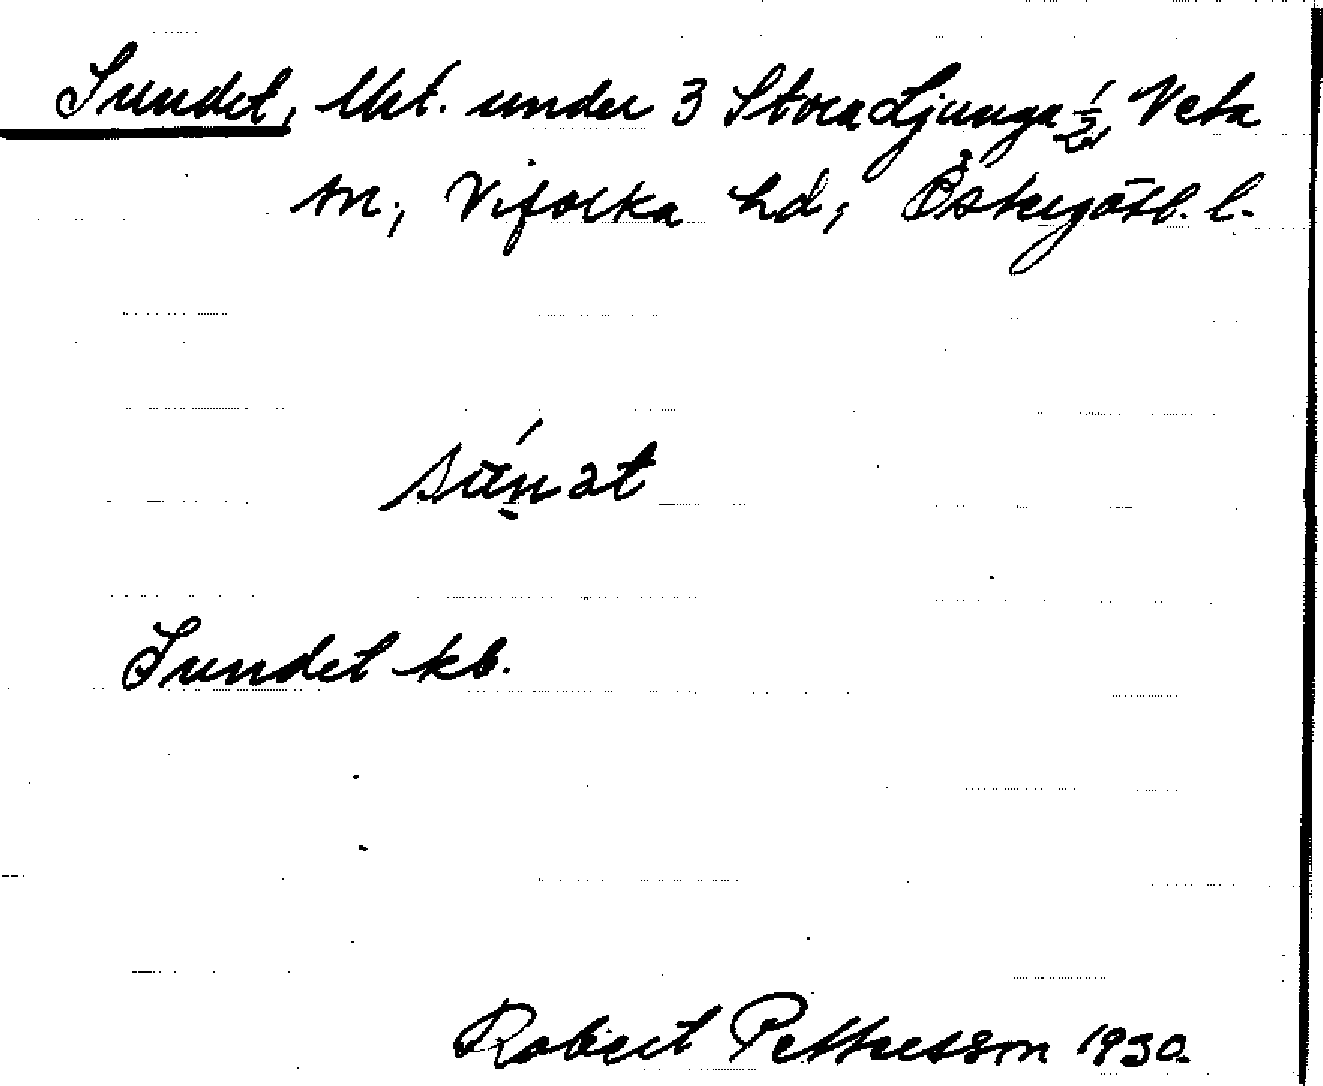 Sundet, Utj. under 3 Stora Ljunga 1/2, Veta
sn., Vifolka hd, Östergötl. l.
sún̬ət
Sundet kb.
Robert Pettersson 1930.